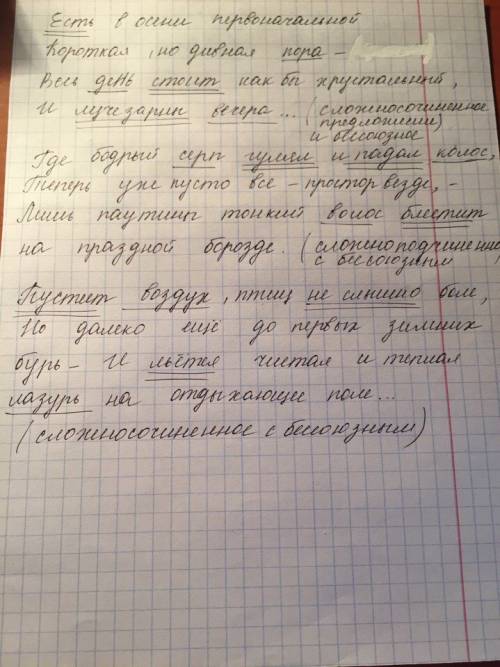 Есть в осени первоначальной
Короткая, но дивная пора -
Весь день стоит как бы хрустальный,
И лучезарны вечера... (сложносочиненное
предложении)
и бессоюзное
Где бодрый серп гулял и падал колос,
Теперь уже пусто все - простор везде, -
Лишь паутины тонкий волос блестит
на праздной борозде. (сложноподчиненно
с бессоюзным)
Пустеет воздух, птиц не слышно боле,
Но далеко ещё до первых зимних
бурь - И льётся чистая и теплая
лазурь на отдыхающее поле...
(сложносочиненное с бессоюзным)